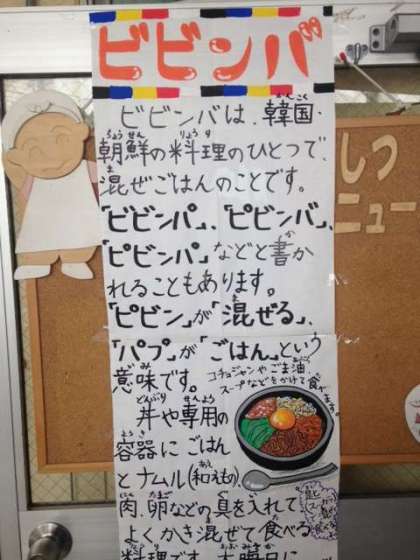 ビビンバ
ビビンバは、韓国・
朝鮮の料理のひとつで、
混ぜごはんのことです。
「ビビンパ」、「ピビンバ」、
「ピビンパ」などと書か
れることもあります。
「ピビン」が「混ぜる」、
「パプ」が「ごはん」という
意味です。
コチュジャンやごま油
スープなどをかけて食べます。
丼や専用の
容器にごはん
とナムル(和えもの)、
肉、卵などの具を入れて
よく、かき混ぜて食べる
料理です。
しつ
ニュー